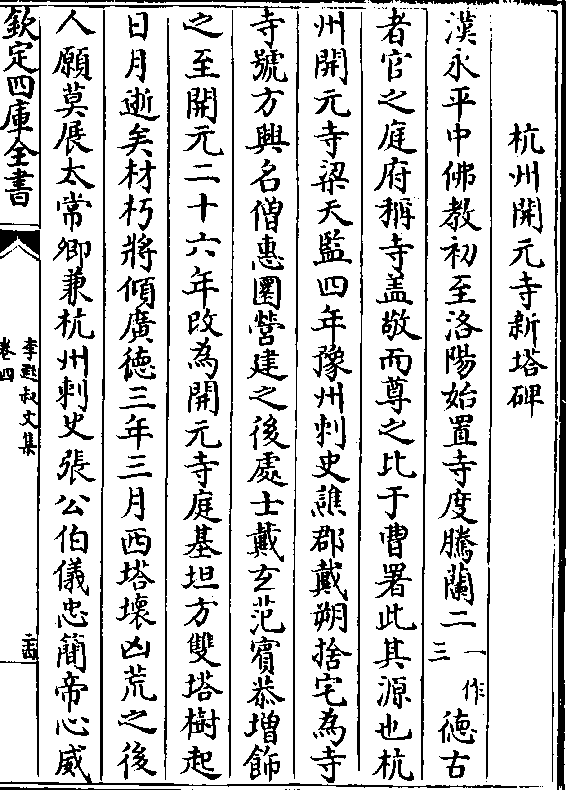 杭州開元寺新塔碑
漢永平中佛教初至洛陽始置寺度騰蘭二一作三德古
者官之庭府稱寺盖敬而尊之比于曹署此其源也杭
州開元寺梁天監四年豫州刺史譙郡戴朔捨宅為寺
寺號方興名僧惠圍營建之後處士戴玄范賓恭增飾
之至開元二十六年改為開元寺庭基坦方雙塔樹起
日月逝矣材朽將傾廣德三年三月西塔壞凶荒之後
人願莫展太常卿兼杭州刺史張公伯儀忠簡帝心威
欽定四庫全書
李遐叔文集
卷四
二十四